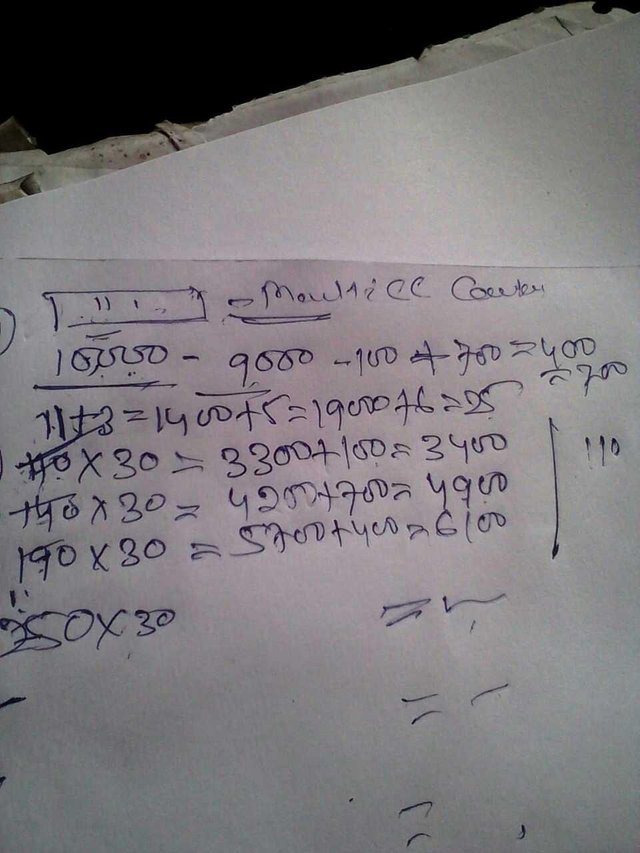 10,000 - 9000 - 100 + 700 = 400
= 700
11+3 = 1400+5 = 1900+6 = 25
110 x 30 = 3300+100 = 3400
140 x 30 = 4200+700 = 4900
190 x 30 = 5700+400 = 6100
110
250 x 30